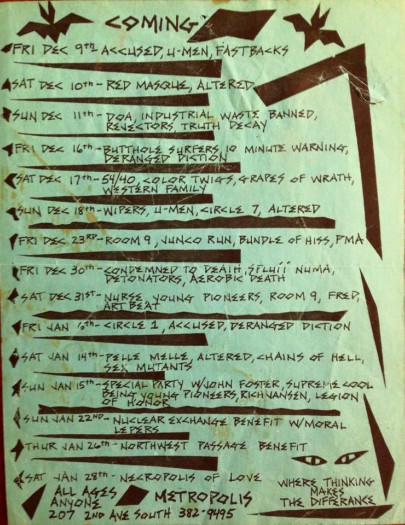 COMING:
FRI DEC 9TH ACCUSED, U-MEN, FASTBACKS
SAT DEC 10th - RED MASQUE, ALTERED
SUN DEC 11th - DOA, INDUSTRIAL WASTE BANNED,
REJECTORS, TRUTH DECAY
FRI DEC 16th - BUTTHOLE SURFERS, 10 MINUTE WARNING,
DERANGED DICTION
SAT DEC 17th - 54/40, COLOR TWIGS, GRAPES OF WRATH,
WESTERN FAMILY
SUN DEC 18th - WIPERS, U-MEN, CIRCLE 7, ALTERED
FRI DEC 23RD - ROOM 9, JUNCO RUN, BUNDLE OF HISS, PMA
FRI DEC 30th - CONDEMNED TO DEATH, NUMA,
DETONATORS, AEROBIC DEATH
SAT DEC 31ST - NURSE, YOUNG PIONEERS, ROOM 9, FRED,
ART BEAT
FRI JAN CIRCLE 1, ACCUSED, DERANGED DICTION
SAT JAN 14th - PELLE MELLE, ALTERED, CHAINS OF HELL,
SEX MUTANTS
SUN JAN 15th - SPECIAL PARTY W/JOHN FOSTER, SUPREME COOL
BEING YOUNG PIONEERS, RICH JANSEN, LEGION
OF HONOR
SUN JAN 22ND - NUCLEAR EXCHANGE BENEFIT W/MORAL
LEPERS
THUR JAN 26th - NORTHWEST PASSAGE BENEFIT
SAT JAN 28th - NECROPOLIS OF LOVE
ALL AGES
ANYONE
METROPOLIS
207 2ND AVE SOUTH 382-9495
WHERE THINKING
MAKES
THE DIFFERANCE